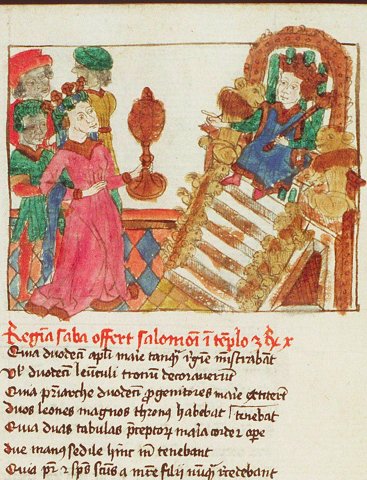 Regina saba offert salomoni i templo 3 Reg x
Quia duodeci apli marie tanq regine mistrabant
Vl duodeci leuculi tronum decoraverut
Quia priarche duodeci pgenitores marie extiterut
duos leones magnos thronq habebat tenebat
Quia duas tabulas preceptor maria corde et ope
due manq sedile hinc in tenebant
Quia pr et sps scus a mre filii nuq recedebant